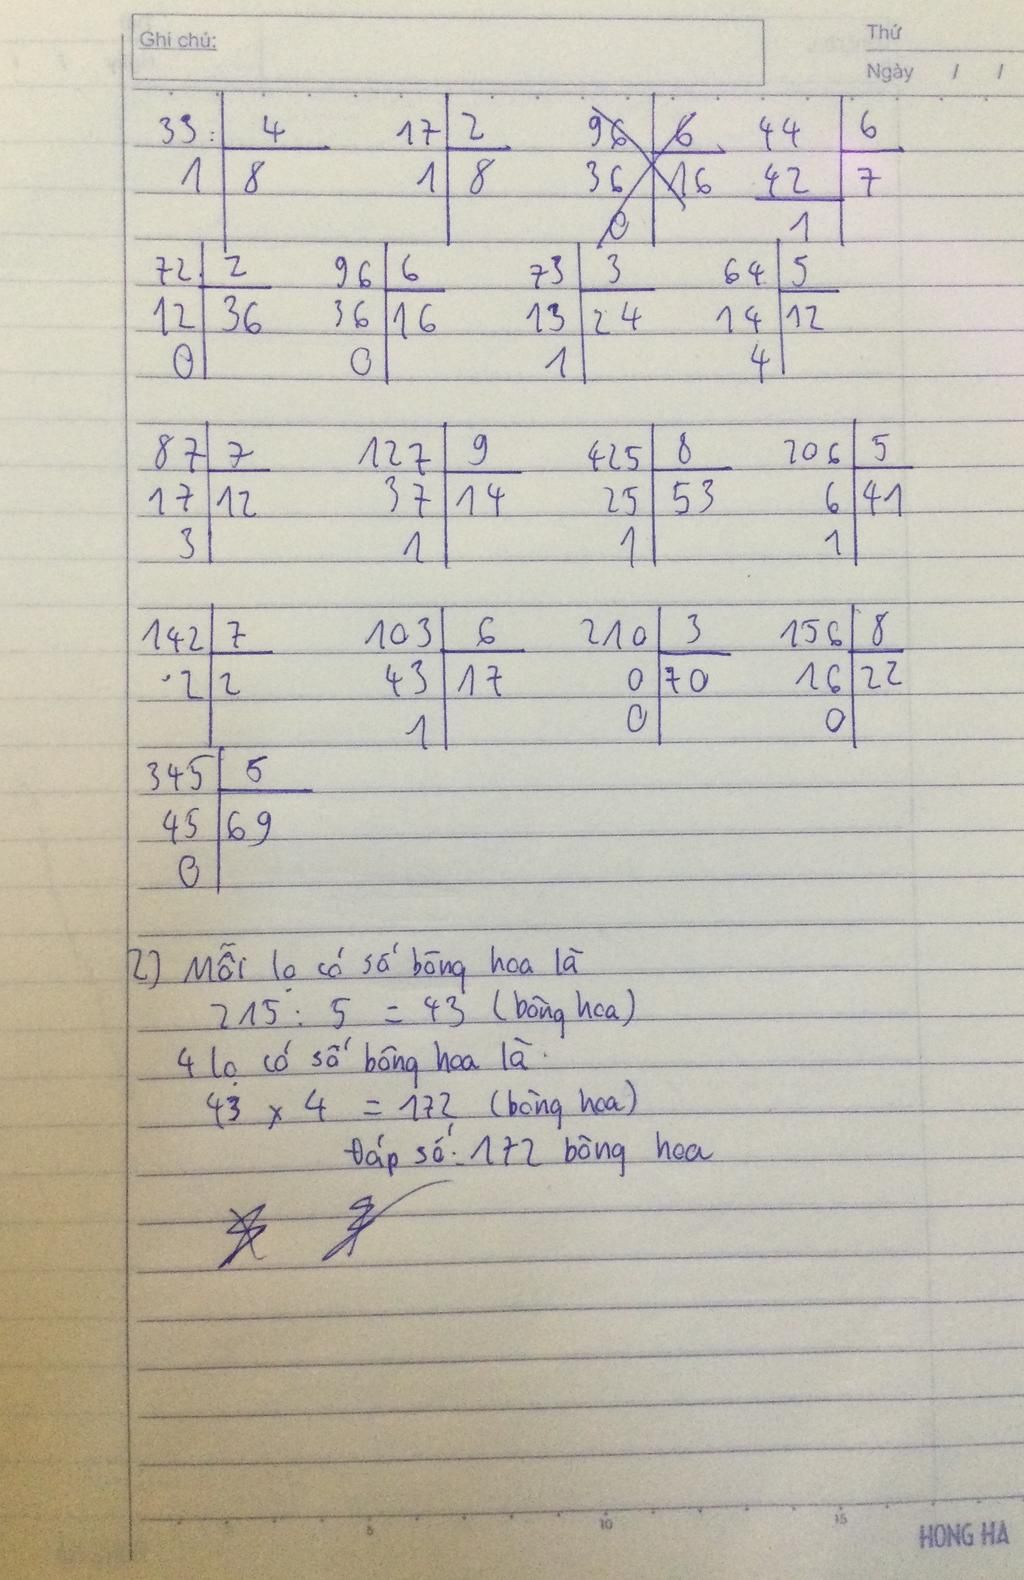 Ghi chú:
Thứ
Ngày / /
33: 4 17 2 96 6 44 6
1 8 1 8 36 16 42 7
0 1
72 2 96 6 73 3 64 5
12 36 36 16 13 24 14 12
0 0 1 4
87 7 127 9 425 8 206 5
17 12 37 14 25 53 6 41
3 1 1 1
142 7 103 6 210 3 156 8
2 2 43 17 0 70 16 22
1 0 0
345 5
45 69
0
2) Mỗi lọ có số bông hoa là
215 : 5 = 43 (bông hoa)
4 lọ có số bông hoa là
43 x 4 = 172 (bông hoa)
Đáp số: 172 bông hoa
5 10 15
HONG HA